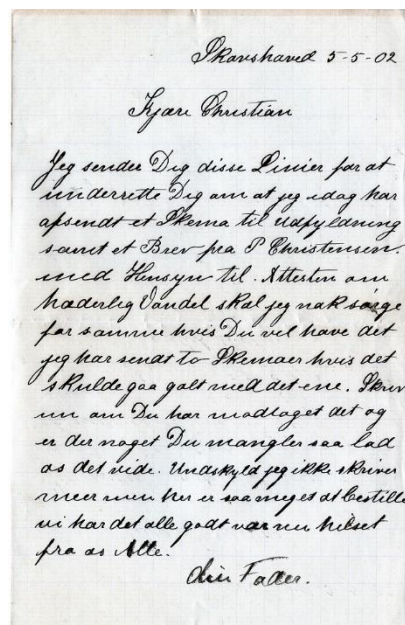 Skovshoved 5-5-02
Kjære Christian
Jeg sender Dig disse Linier for at
underrette Dig om at jeg idag har
afsendt et Skema til Udfyldning
samt et Brev fra P Christensen.
med Hensyn til. Attesten om
hæderlig Vandel skal jeg nok sørge
for samme hvis Du vel have det
jeg har sendt to Skemaer hvis det
skulde gaa galt med det ene. Skriv
nu om Du har modtaget det og
er der noget Du mangler saa lad
os det vide. Undskyld jeg ikke skriver
meer men her er saa meget at bestille
vi har det alle godt vær nu hilset
fra os Alle.
din Fader.